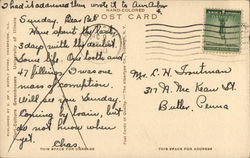 I had it addressed then wrote it to Ann Arbor
HAND-COLORED
POST CARD
Sunday. Dear Pal
Have spent the last
3 days with the dentist.
Some life. One tooth and
47 fillings. I was one
mass of corruption.
Will see you Sunday.
Coming by train, but
do not know when
yet.
Chas.
Mr. L. H. Troutman
317 N. McKean St.
Butler, Penna
THIS SPACE FOR MESSAGE
THIS SPACE FOR ADDRESS